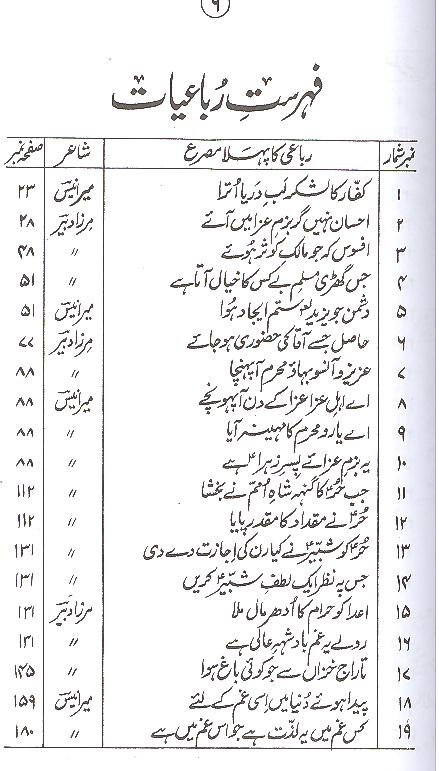 ۹
فہرستِ رُباعیات
نمبر شمار رباعی کا پہلا مصرع شاعر صفحہ نمبر
۱ کفّار کا لشکر لبِ دریا اُترا میر انیسؔ ۲۳
۲ احسان نہیں گر بزمِ عزا میں آئے مرزا دبیرؔ ۲۸
۳ افسوس کہ جو مالکِ کوثر ہوئے ″ ۴۸
۴ جس گھڑی مسلمِ بے کس کا خیال آتا ہے ″ ۵۱
۵ دشمن جو یزید ستم ایجاد ہُوا میر انیسؔ ۵۱
۶ حاصل جسے آقا کی حضوری ہو جائے مرزا دبیرؔ ۷۷
۷ عزیزو آنسو بہاؤ محرم آ پہنچا ″ ۸۸
۸ اے اہلِ عزا عزا کے دن آ پہونچے میر انیسؔ ۸۸
۹ اے یارو محرم کا مہینہ آیا ″ ۸۸
۱۰ یہ بزمِ عزائے پسرِ زہراؑ ہے ″ ۸۸
۱۱ جب حُرؑ کا گنہ شاہِ اُمم نے بخشا ″ ۱۱۲
۱۲ حُرؑ نے مقداد کا مقدر پایا ″ ۱۱۲
۱۳ حُرؑ کو شبیرؑ نے کیا رن کی اجازت دے دی ″ ۱۳۱
۱۴ جس پہ نظر ایک لطف شبّیرؑ کریں ″ ۱۳۱
۱۵ اعدا کو حرام کا اُدھر مال ملا مرزا دبیرؔ ۱۳۱
۱۶ رولے یہ غم بادشہِ عالی ہے ″ ۱۳۱
۱۷ تاراج خزاں سے جو کوئی باغ ہوا ″ ۱۴۵
۱۸ پیدا ہوئے دُنیا میں اِسی غم کے لئے میر انیسؔ ۱۵۹
۱۹ کس غم میں یہ لذّت ہے جو اس غم میں ہے ″ ۱۸۰